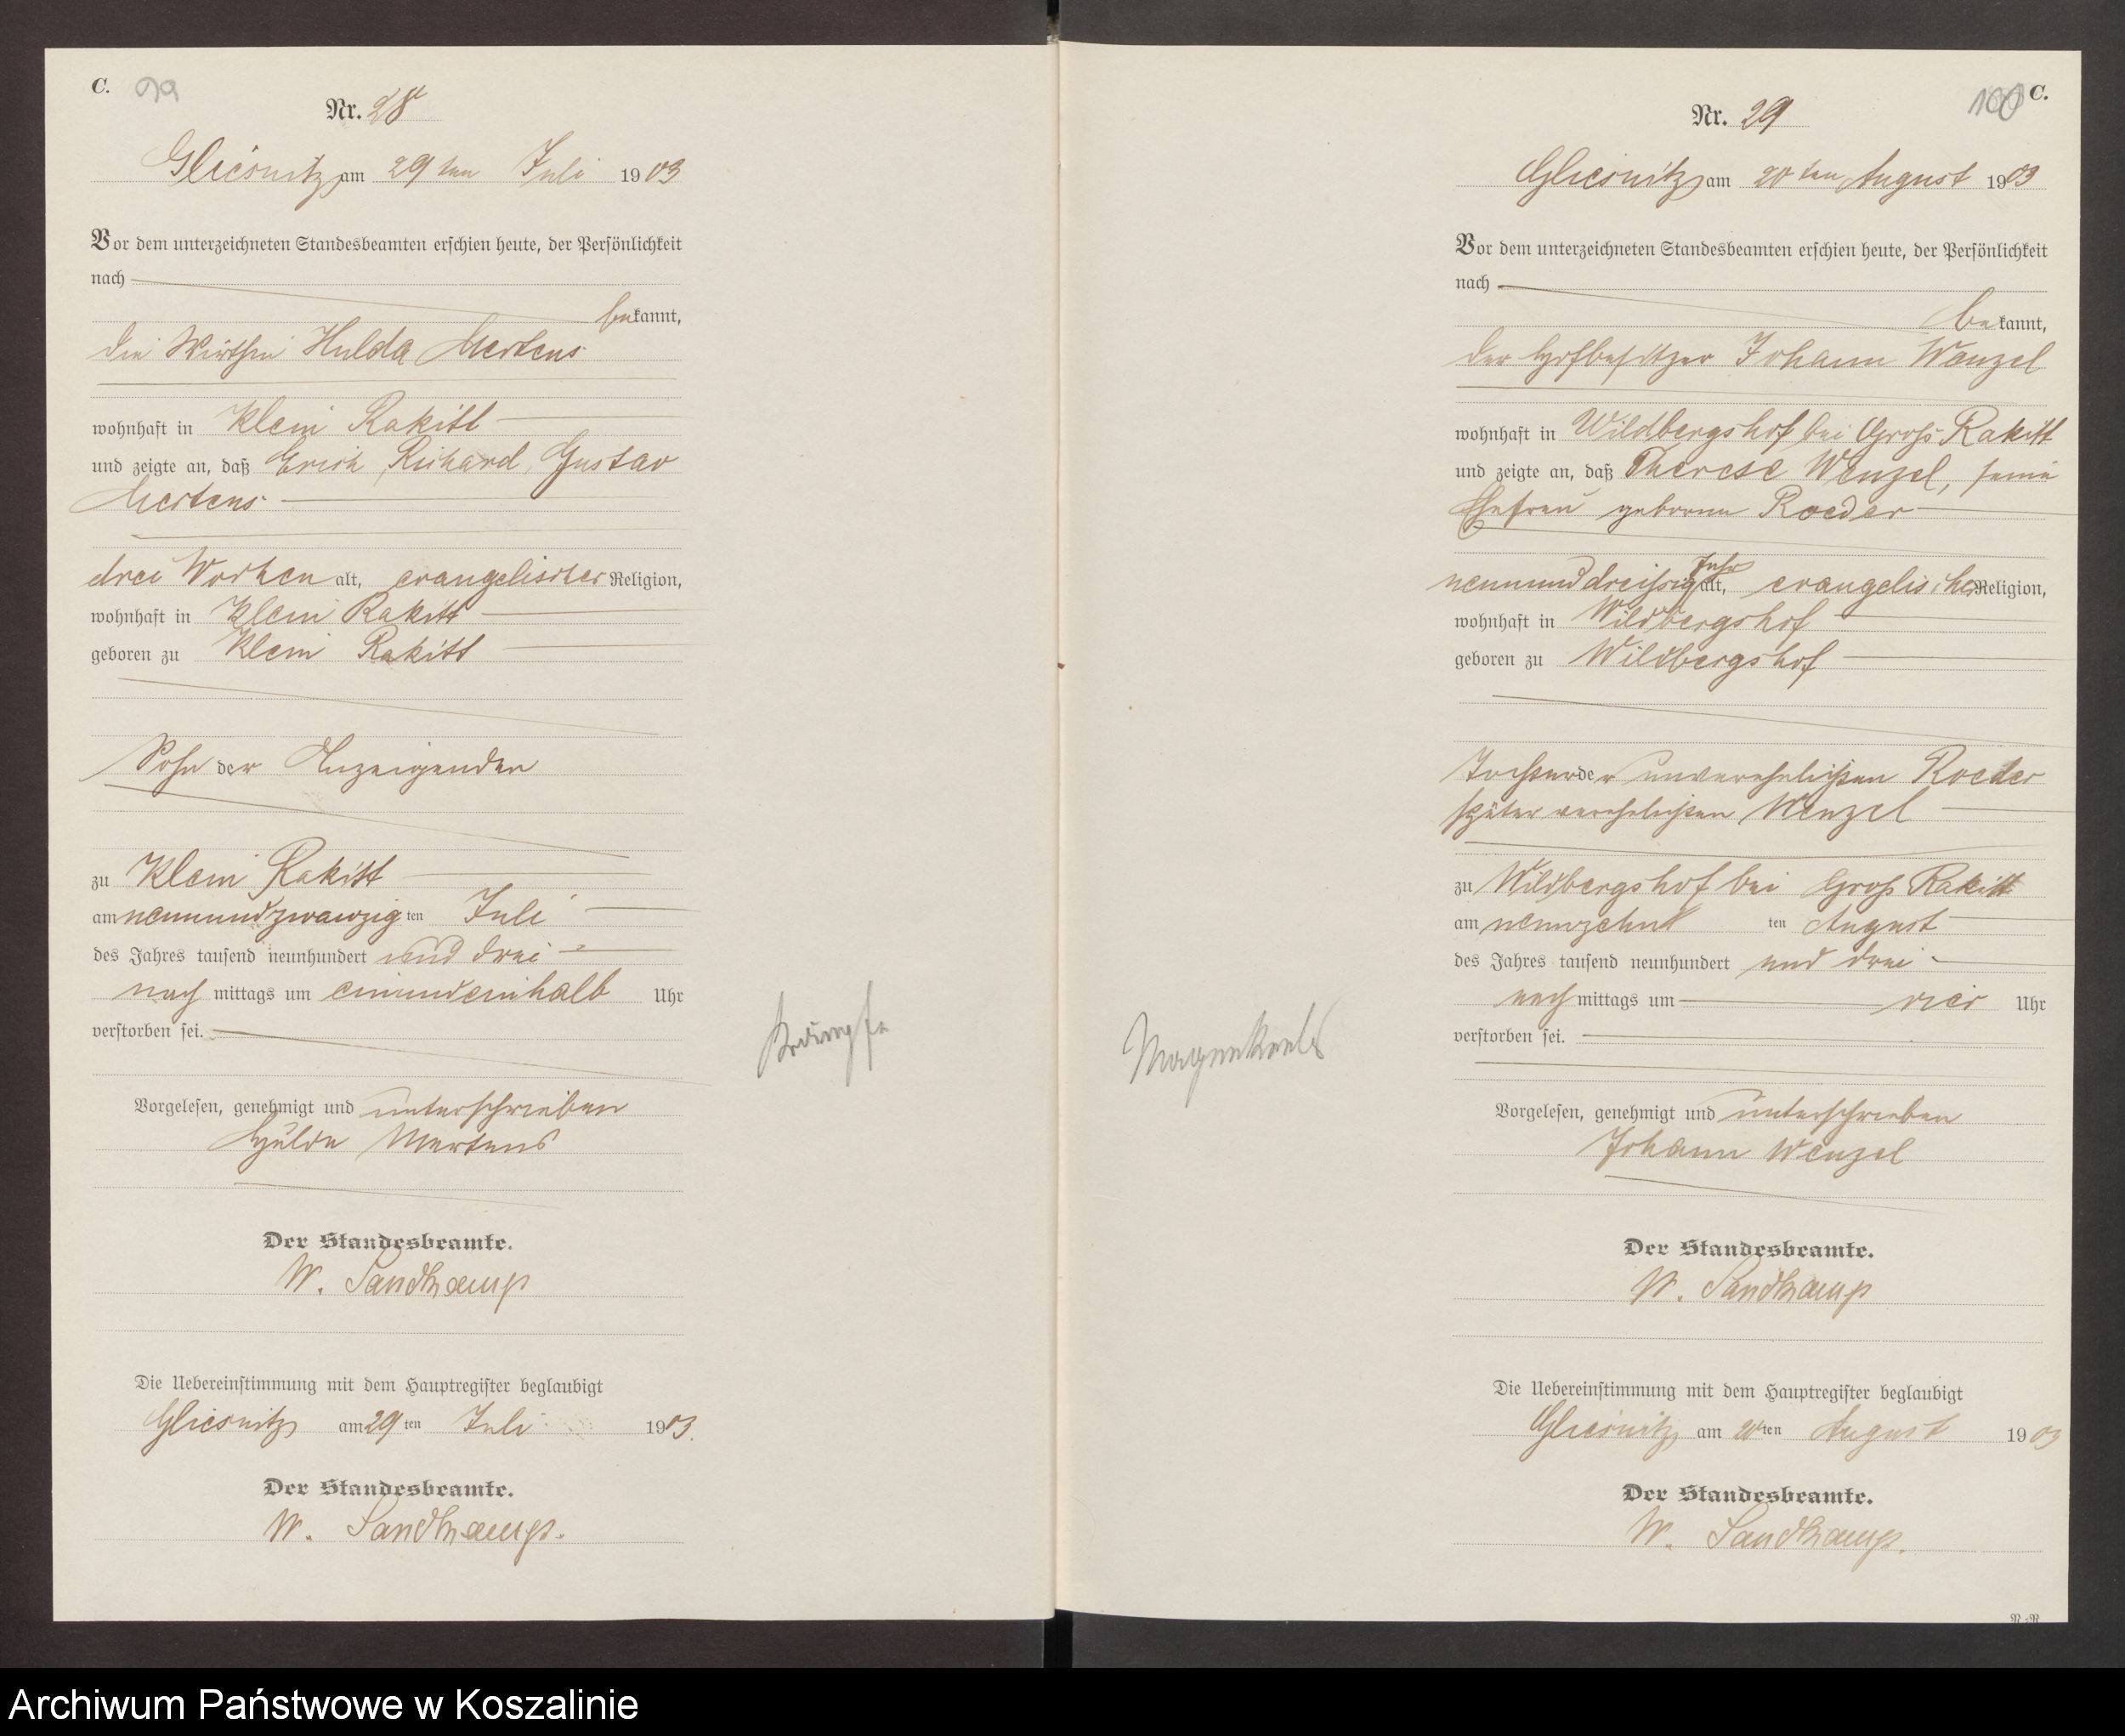 C. 99
Nr. 28
Gliesnitz am 29ten Juli 1903
Vor dem unterzeichneten Standesbeamten erschien heute, der Persönlichkeit
nach
bekannt,
die Wirthin Hulda Mertens
wohnhaft in Klein Rakitt
und zeigte an, daß Erich Richard Gustav
Mertens
drei Wochen alt, evangelischer Religion,
wohnhaft in Klein Rakitt
geboren zu Klein Rakitt
Sohn der Anzeigenden
zu Klein Rakitt
am neunundzwanzigten Juli
des Jahres tausend neunhundert und drei
nachmittags um einundeinhalb Uhr
verstorben sei.
Vorgelesen, genehmigt und unterschrieben
Hulda Mertens
Der Standesbeamte.
W. Sandkamp
Die Uebereinstimmung mit dem Hauptregister beglaubigt
Gliesnitz am 29ten Juli 1903.
Der Standesbeamte.
W. Sandkamp.
Krämpfe
100 C.
Nr. 29
Gliesnitz am 20ten August 1903
Vor dem unterzeichneten Standesbeamten erschien heute, der Persönlichkeit
nach
bekannt,
der Hofbesitzer Johann Wenzel
wohnhaft in Wildbergshof bei Groß Rakitt
und zeigte an, daß Therese Wenzel, seine
Ehefrau geborene Roeder
neununddreißig Jahr alt, evangelischer Religion,
wohnhaft in Wildbergshof
geboren zu Wildbergshof
Tochter der unverehelichten Roeder
später verehelichten Wenzel
zu Wildbergshof bei Groß Rakitt
am neunzehnten August
des Jahres tausend neunhundert und drei
nachmittags um vier Uhr
verstorben sei.
Vorgelesen, genehmigt und unterschrieben
Johann Wenzel
Der Standesbeamte.
W. Sandkamp
Die Uebereinstimmung mit dem Hauptregister beglaubigt
Gliesnitz am 20ten August 1903
Der Standesbeamte.
W. Sandkamp.
Magenkrebs
Archiwum Państwowe w Koszalinie